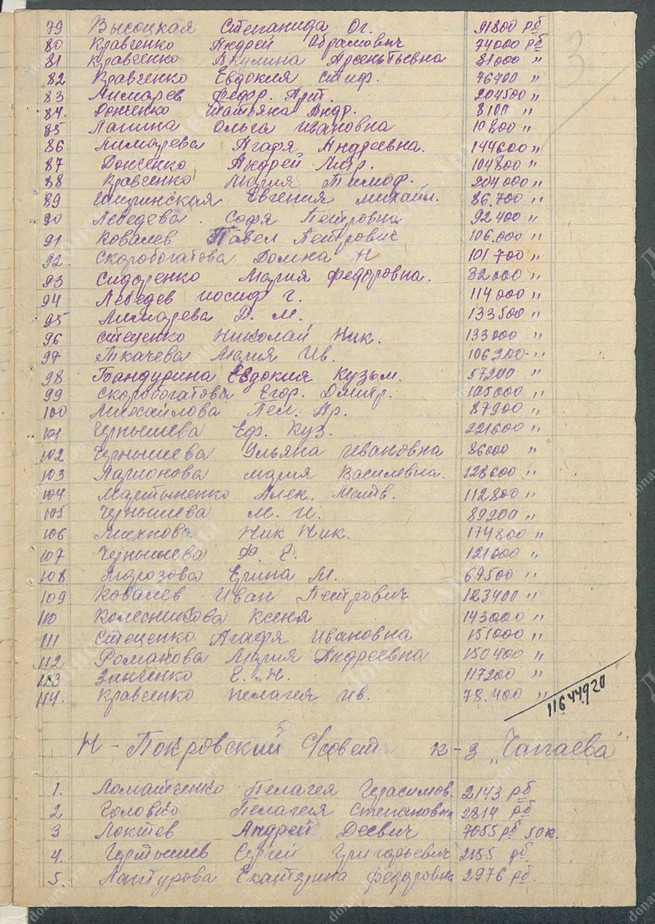 79 Высоцкая Степанида Ог. 91800 рб
80 Кравченко Андрей Абрамович 74000 рб
81 Кравченко Акулина Арсентьевна 81000 "
82 Кравченко Евдокия 76700 "
83 Лимарев Федор. Арт. 204500 "
84. Доненко Татьяна Андр. 8100 "
85 Лапина Ольга Ивановна 10800 "
86 Лимарева Агафя Андреевна. 144600 "
87 Доненко Андрей 104800 "
88 Кравченко Мария Тимоф. 204000 "
89 Евгения Михайл. 86.700 "
90 Лебедева. Софя Петровна 92400 "
91 Ковалев Павел Петрович 106.000 "
92 Скоробогатова Домна Н 101700 "
93 Сидоренко Мария Федоровна. 32000 "
94 Лебедев Иосиф Г. 114000 "
95 Лимарева М. 133500 "
96 Стеценко Николай Ник. 133000 "
97 Ткачева Мария Ив. 106200 "
98 Бандурина Евдокия Кузьм. 57200 "
99 Скоробогатова Егор. Дмитр. 105000 "
100 Михайлова Пел. Пр. 87900 "
101 Чернышева Еф. Куз. 221600 "
102 Чернышева Ульяна Ивановна 86000 "
103 Ларионова Мария Василевна. 128600 "
104 Мартыненко Алек. Матв. 112800 "
105 Чернышева М. И. 89200 "
106 Михнова Ник Ник. 174800 "
107 Чернышева Ф. Е. 121000 "
108 Марозова Ерина М. 69500 "
109 Ковалев Иван Петрович 123400 "
110 Колесникова Ксеня 143000 "
111 Стеценко Агафя Ивановна 151000 "
112. Романова Мария Андреевна 150400 "
113 Зинченко Е. Н. 117200 "
114. Кравченко Пелагея Ив. 78.400 "
11644920
Н-Покровский С/совет к-з "Чапаева"
1. Ломатченко Пелагея Герасимов. 2143 рб
2 Головко Пелагея Степановна 2814 рб
3 Локтев Андрей 7055 рб 50к.
4. Сергей Григорьевич 2155 рб
5. Лантурова Екатерина Федоровна 2976 рб.